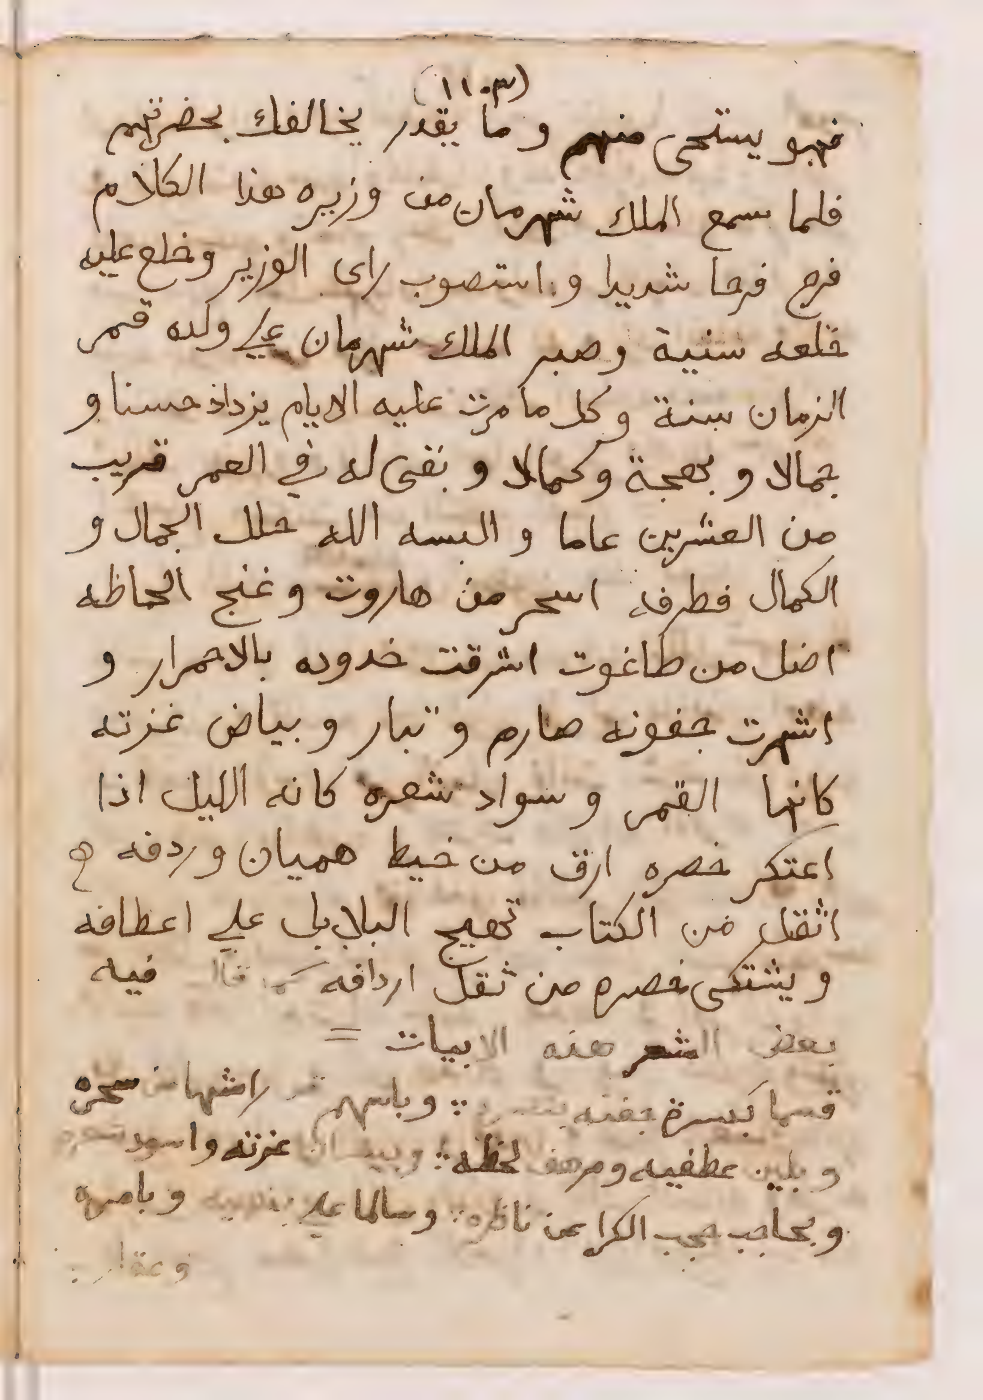 (١١٠٣)
فهو يستحى منهم و ما يقدر يخالفك بحضرتهم
فلما سمع الملك شهرمان من وزيره هذا الكلام
فرح فرحا شديدا و استصوب راى الوزير وخلع عليه
خلعه سنية وصبر الملك شهرمان على ولده قمر
الزمان سنة وكل ما مرت عليه الايام يزداد حسنا و
جمالا و بهجة وكمالا و بقى له في العمر قريب
من العشرين عاما و البسه الله حلل الجمال و
الكمال فطرفه اسحر من هاروت وغنج الحاظه
اضل من طاغوت اشرقت خدوده بالاحمرار و
اشهرت جفونه صارم و تبار و بياض غزته
كانها القمر و سواد شعره كانه الليل اذا
اعتكر خصره ارق من خيط هميان وردفه
اثقل من الكتاب تهيج البلابل علي اعطافه
ويشتكى خصره من ثقل اردافه كما قال فيه
بعض الشعر هذه الابيات =
قسما بكسرة جفنه : وباسهم قد راشها من سحره
و بلين عطفيه ومرهف لحظه : وبياض غزته واسود شعره
وبحاجب حجب الكرا عن ناظره : وسالما علي بنهيه وبامره
وعقارب